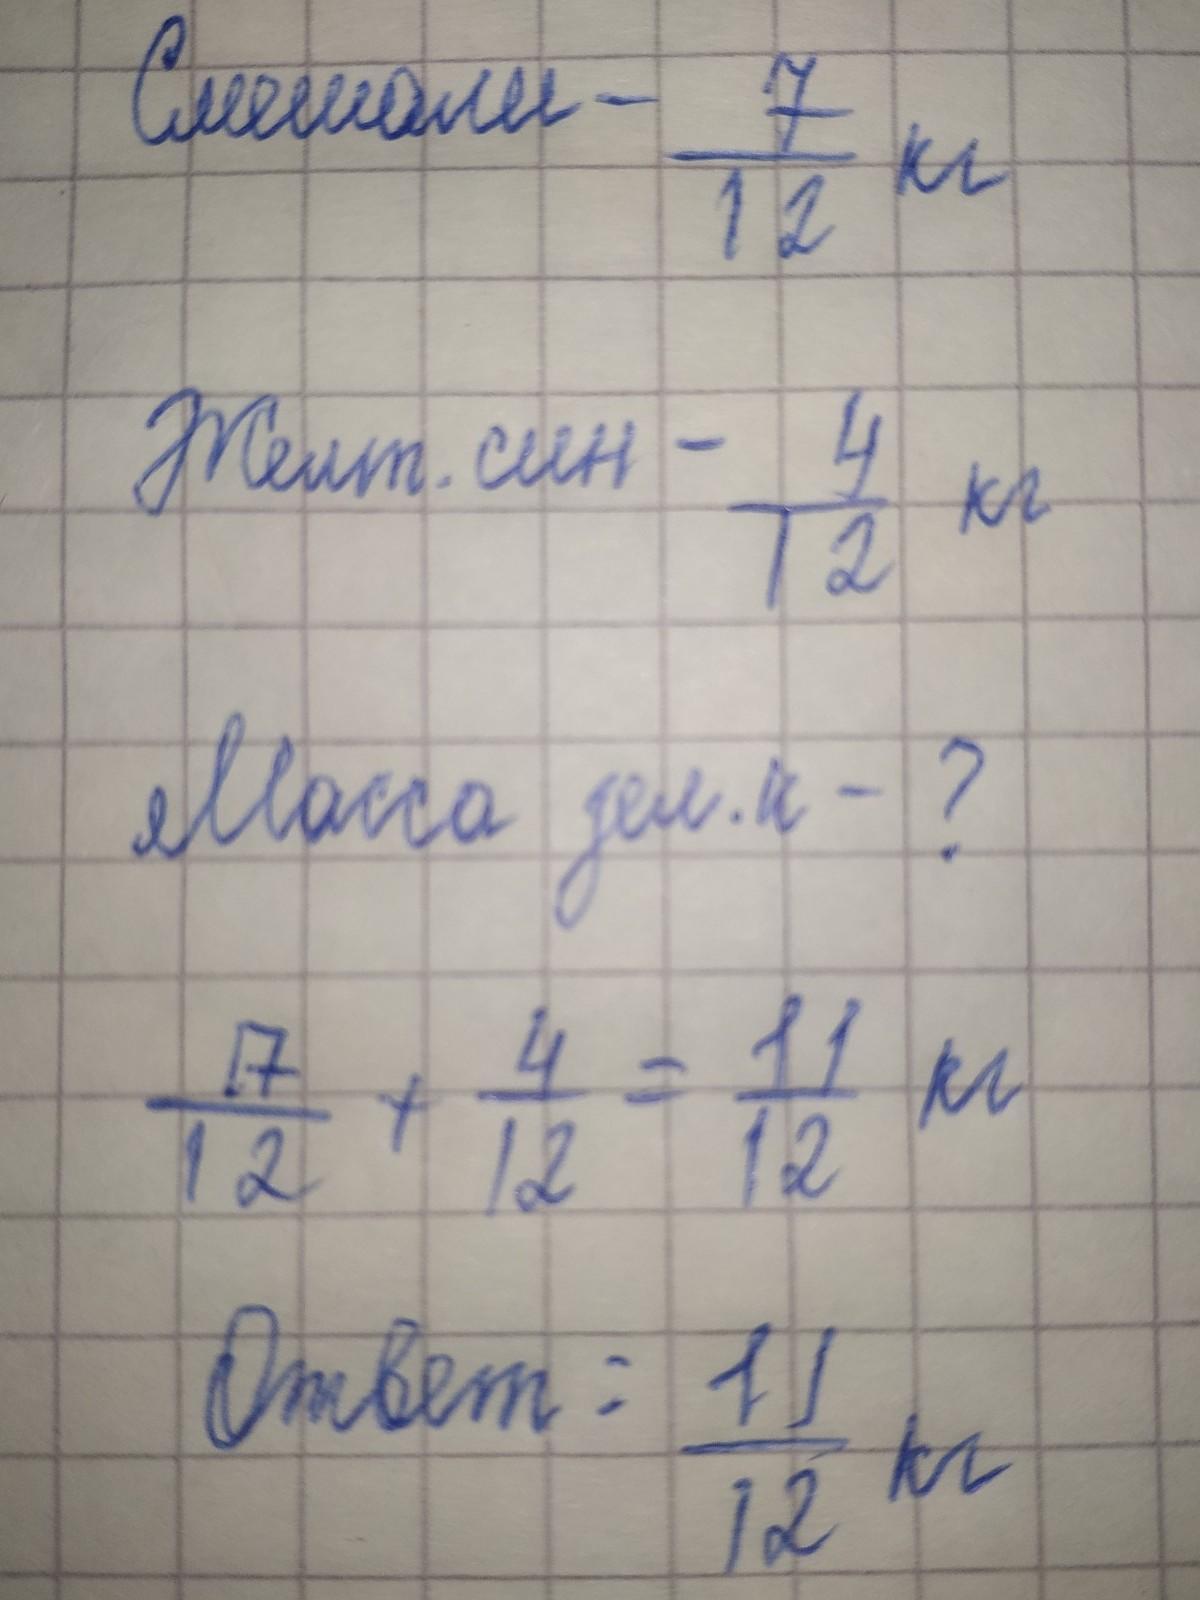 Смешали - 7/12 кг
Желт. син - 4/12 кг
Масса зел. к - ?
7/12 + 4/12 = 11/12 кг
Ответ: 11/12 кг